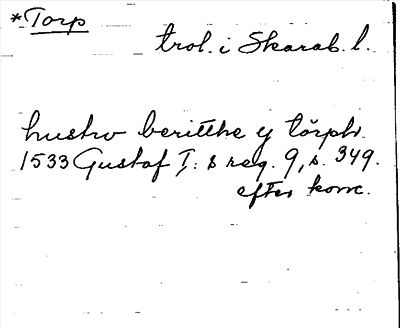 *Torp
trol. i Skarab. l.
hustrv beritthe y törph
1533 Gustaf I: s reg. 9, s. 349.
efter konc.